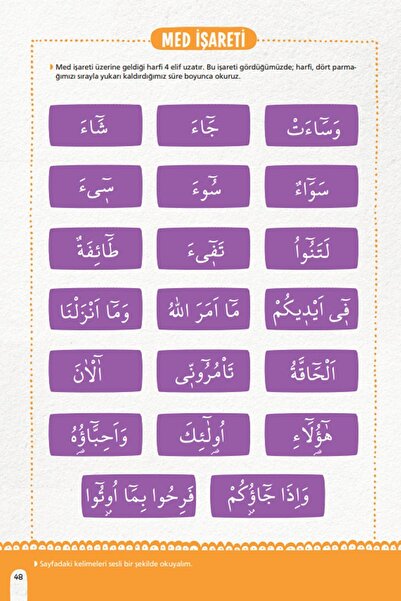 MED İŞARETİ
Med işareti üzerine geldiği harfi 4 elif uzatır. Bu işareti gördüğümüzde; harfi, dört parma-
ğımızı sırayla yukarı kaldırdığımız süre boyunca okuruz.
وَسَٓاءَتْ جَٓاءَ شَٓاءَ
سَوَٓاءٌ سُٓوءَ س۪ٓيءَ
لَتَنُٓواُ تَف۪ٓيءَ طَٓائِفَةٌ
ف۪ٓي اَيْد۪يكُمْ مَٓا اَمَرَ اللّٰهُ وَمَٓا اَنْزَلْنَا
اَلْحَٓاقَّةُ تَأْمُرُٓونّ۪ٓي اٰلْـٰٔنَ
هٰٓؤُ۬لَٓاءِ اُو۬لٰٓئِكَ وَاَحِبَّٓاؤُ۬هُ
وَاِذَا جَٓاؤُ۫كُمْ فَرِحُوا بِمَٓا اُو۫تُٓوا
Sayfadaki kelimeleri sesli bir şekilde okuyalım.
48